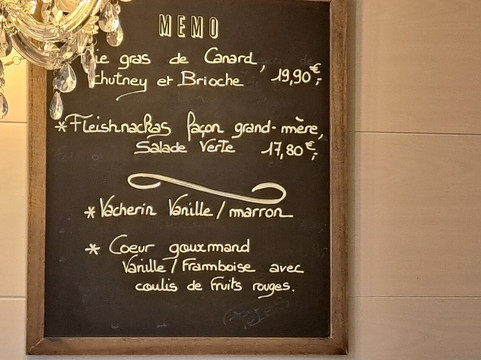 MEMO
gras de Canard,
chutney et Brioche 19,90€
* Fleishnackas façon grand-mère,
Salade Verte 17,80€
* Vacherin Vanille / marron
* Coeur gourmand
Vanille / Framboise avec
coulis de fruits rouges.